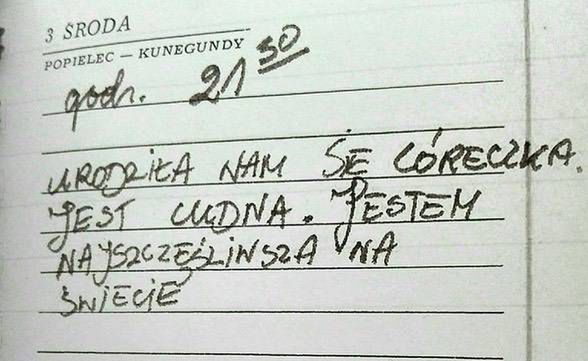 3 ŚRODA
POPIELEC — KUNEGUNDY
godz. 21 30
URODZIŁA NAM SIĘ CÓRECZKA.
JEST CUDNA. JESTEM
NAJSZCZĘŚLIWSZA NA
ŚWIECIE